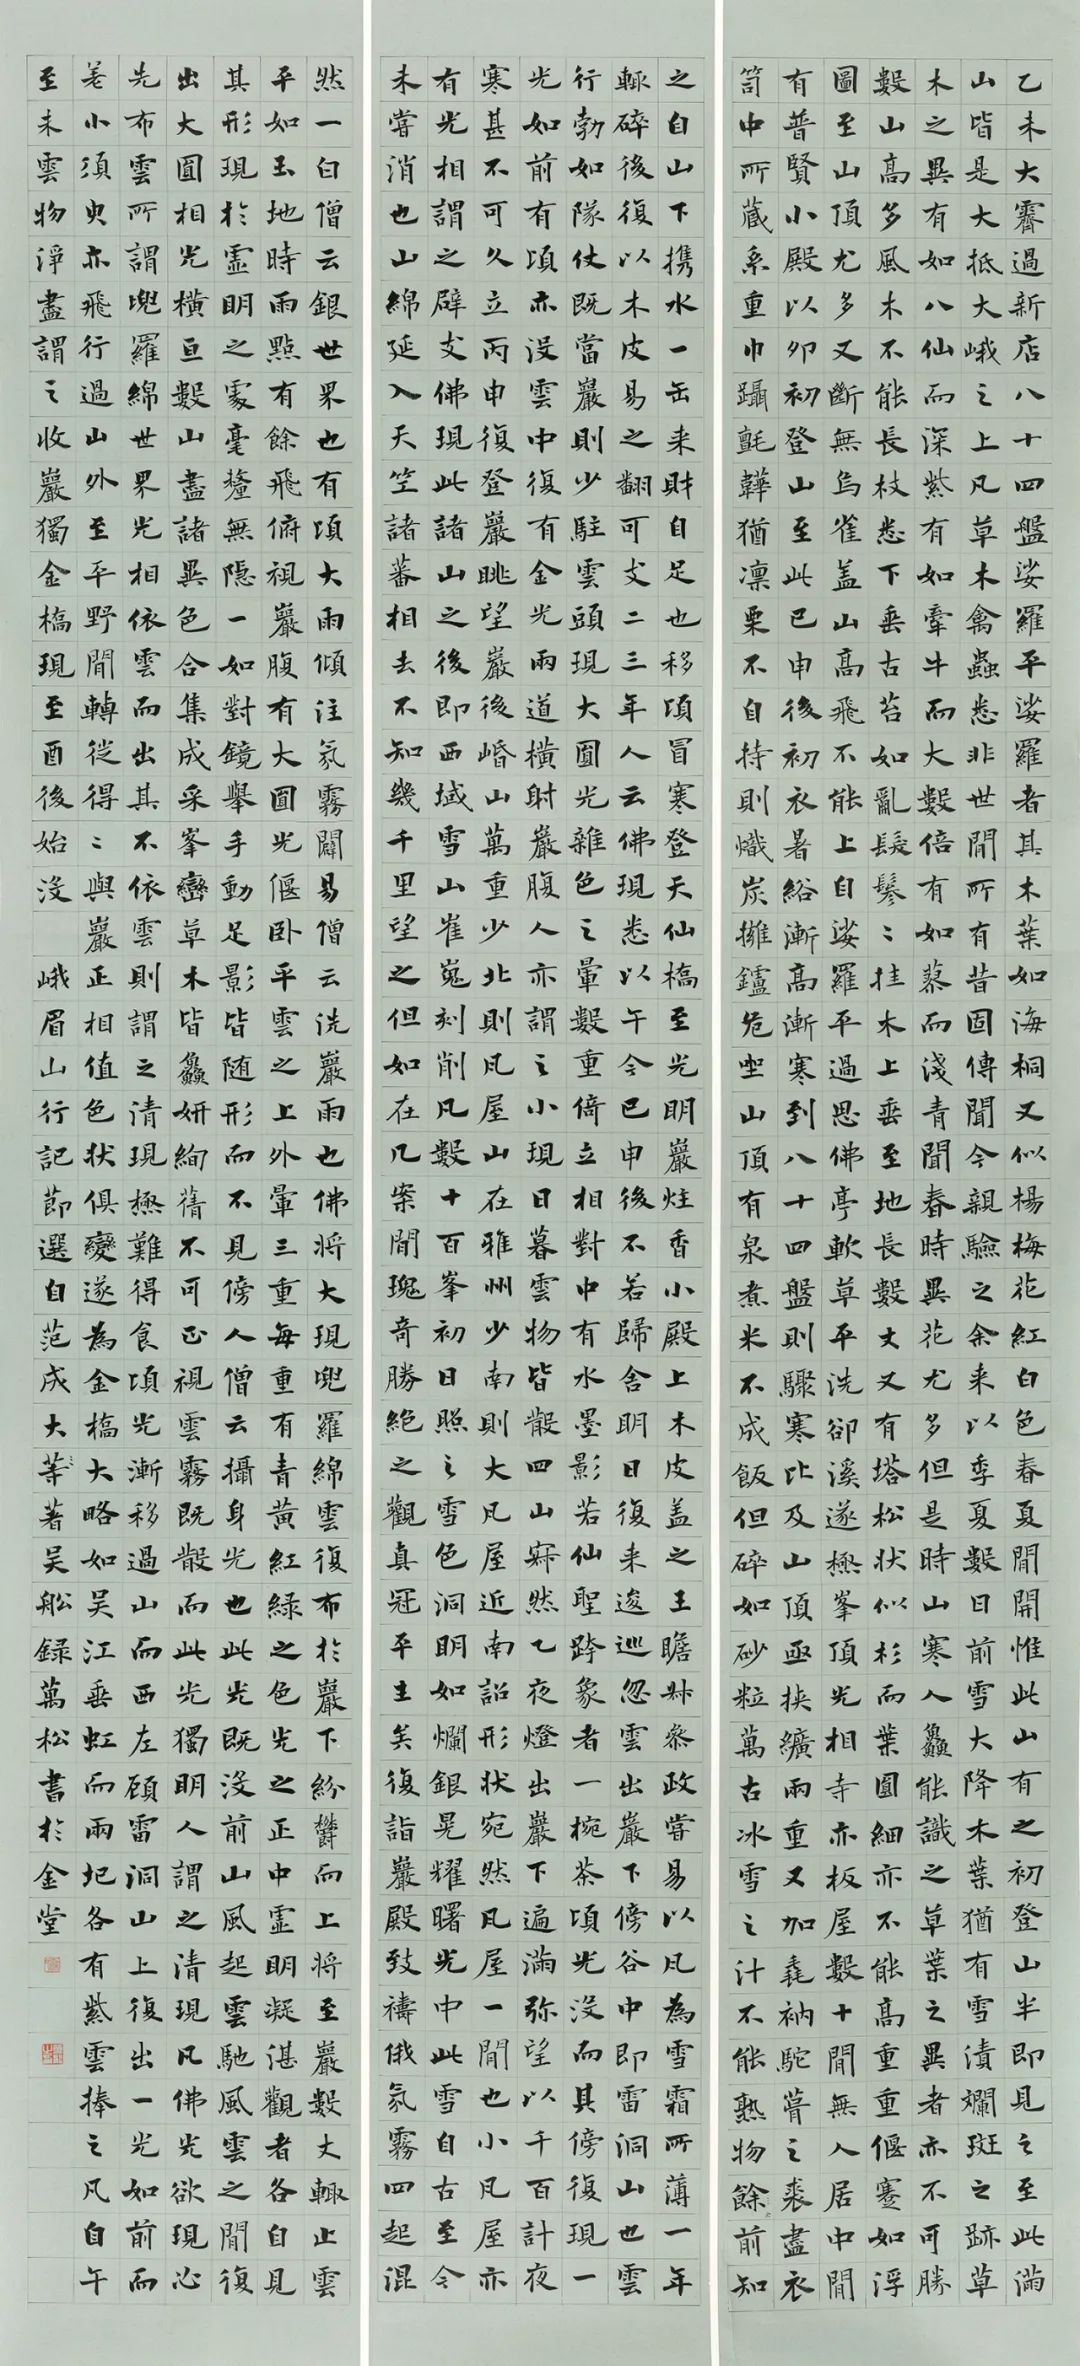 乙未大霽過新店八十四盤娑羅平娑羅者其木葉如海桐又似楊梅花紅白色春夏間開惟此山有之初登山半即見之至此滿
山皆是大抵大峨之上凡草木禽蟲悉非世間所有昔固傳聞今親驗之余来以季夏數日前雪大降木葉猶有雪漬斕斑之跡草
木之異有如八仙而深紫有如牽牛而大數倍有如蓼而淺青聞春時異花尤多但是時山寒人鱻能識之草葉之異者亦不可勝
數山高多風木不能長枝悉下垂古苔如亂髮鬖〻挂木上垂至地長數丈又有塔松狀似杉而葉圓細亦不能高重重偃蹇如浮
圖至山頂尤多又斷無烏雀盖山高飛不能上自娑羅平過思佛亭軟草平洗卻溪遂極峯頂光相寺亦板屋數十間無人居中間
有普賢小殿以卯初登山至此已申後初衣暑綌漸高漸寒到八十四盤則驟寒比及山頂亟挾纊兩重又加毳衲駝茸之裘盡衣
笥中所藏系重巾躡氈鞾猶凛栗不自持則熾炭擁鑪危坐山頂有泉煮米不成飯但碎如砂粒萬古冰雪之汁不能熟物餘前知
之自山下携水一缶来財自足也移頃冒寒登天仙橋至光明巖炷香小殿上木皮盖之王瞻叔參政嘗易以瓦為雪霜所薄一年
輙碎後復以木皮易之翻可支二三年人云佛現悉以午今已申後不若歸舍明日復来逡巡忽雲出巖下傍谷中即雷洞山也雲
行勃如隊仗既當巖則少駐雲頭現大圓光雜色之暈數重倚立相對中有水墨影若仙聖跨象者一椀茶頃光没而其傍復現一
光如前有頃亦没雲中復有金光兩道橫射巖腹人亦謂之小現日暮雲物皆散四山寂然乙夜燈出巖下遍滿弥望以千百計夜
寒甚不可久立丙申復登巖眺望巖後岷山萬重少北則瓦屋山在雅州少南則大瓦屋近南詔形状宛然瓦屋一間也小瓦屋亦
有光相謂之辟支佛現此諸山之後即西域雪山崔嵬刻削凡數十百峯初日照之雪色洞明如爛銀晃耀曙光中此雪自古至今
未嘗消也山綿延入天竺諸蕃相去不知幾千里望之但如在几案間瑰奇勝絶之觀真冠平生矣復詣巖殿致禱俄氛霧四起混
然一白僧云銀世界也有頃大雨傾注氛霧闢易僧云洗巖雨也佛將大現兜羅綿雲復布於巖下紛鬱而上將至巖數丈輙止雲
平如玉地時雨點有餘飛俯視巖腹有大圓光偃卧平雲之上外暈三重每重有青黃紅綠之色光之正中虛明凝湛觀者各自見
其形現於虛明之處毫釐無隱一如對鏡舉手動足影皆随形而不見傍人僧云攝身光也此光既没前山風起雲馳風雲之間復
出大圓相光橫亘數山盡諸異色合集成采峯巒草木皆鱻妍絢蒨不可正視雲霧既散而此光獨明人謂之清現凡佛光欲現必
先布雲所謂兜羅綿世界光相依雲而出其不依雲則謂之清現極難得食頃光漸移過山而西左顧雷洞山上復出一光如前而
差小須臾亦飛行過山外至平野間轉從得〻與巖正相值色状俱變遂為金橋大略如吴江垂虹而兩圯各有紫雲捧之凡自午
至未雲物淨盡謂之收巖獨金橋現至酉後始没 峨眉山行記節選自范成大等著吴船録萬松書於金堂